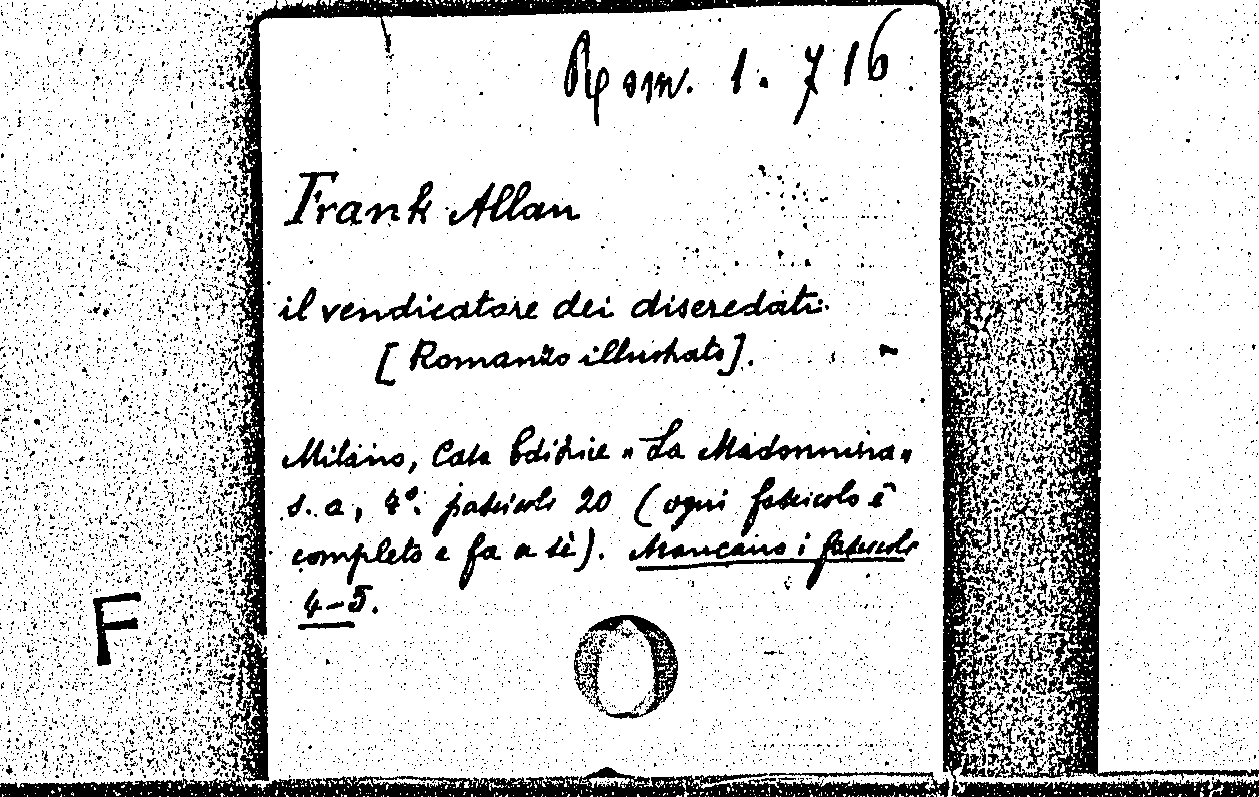 Rom. 1. 716
Frank Allan
il vendicatore dei diseredati.
[Romanzo illustrato].
Milano, Casa Editrice "La Madonnina"
s. a, 8°. fascicoli 20 (ogni fascicolo è
completo e fa a sè). Mancano i fascicoli
4-5.
F